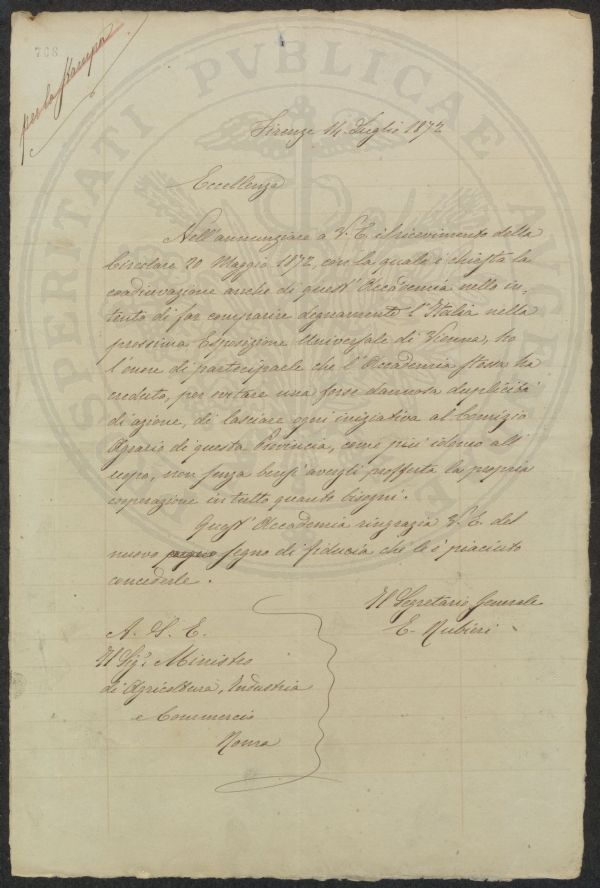 768
per la stampa
PROSPERITATI PVBLICAE AVGENDAE
Firenze 14 Luglio 1872
Eccellenza
Nell'annunziare a V. E. il ricevimento della
Circolare 20 Maggio 1872, con la quale è chiesta la
coadiuvazione anche di quest'Accademia nello in-
tento di far comparire degnamente l'Italia nella
prossima Esposizione Universale di Vienna, ho
l'onore di parteciparle che l'Accademia stessa ha
creduto, per evitare una forse dannosa duplicità
di azione, di lasciare ogni iniziativa al Comizio
Agrario di questa Provincia, come più idoneo all'
uopo, non senza bensì avergli profferta la propria
cooperazione in tutto quanto bisogni.
Quest'Accademia ringrazia V. E. del
nuovo segno di fiducia che le è piaciuto
concederle.
Il Segretario Generale
E. Rubieri
A. S. E.
Il Sig.r Ministro
di Agricoltura, Industria
e Commercio
Roma